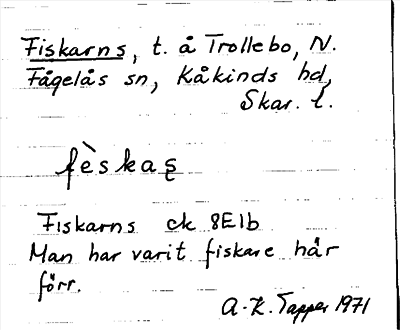 Fiskarns, t. å Trollebo, N.
Fågelås sn, Kåkinds hd,
Skar. l.
fèskaʂ
Fiskarns ek 8E1b
Man har varit fiskare här
förr.
A-K. Tapper 1971